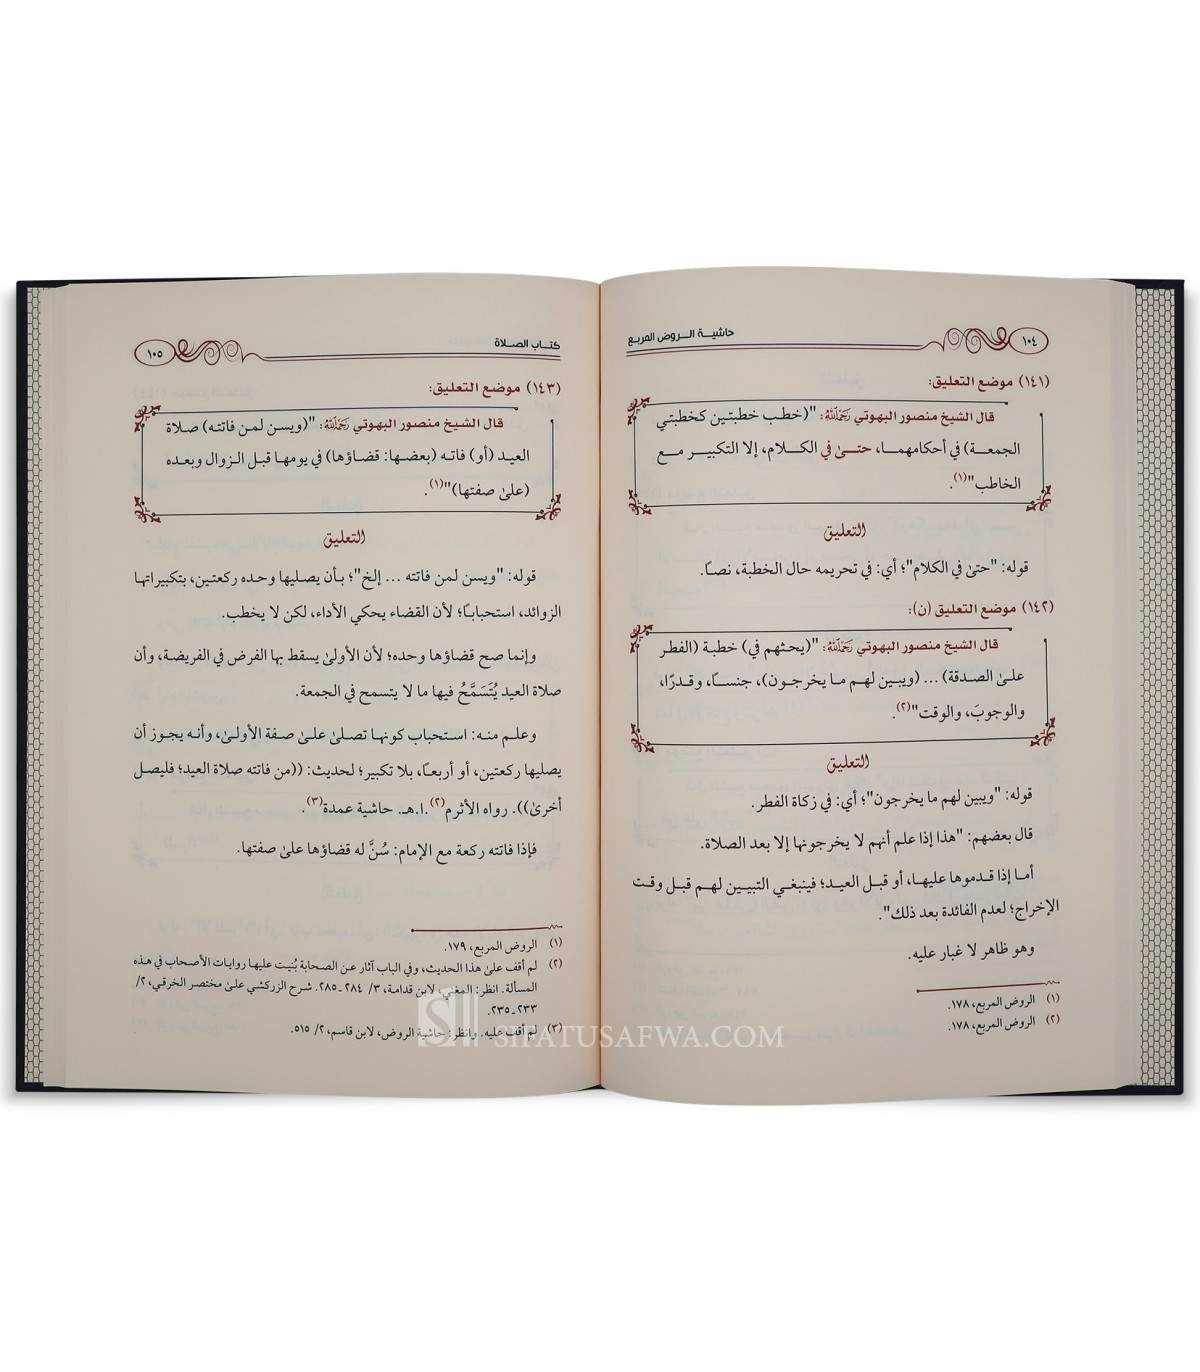 ١٠٤
حاشيـة الـروض المربـع
(١٤١) موضع التعليق:
قال الشيخ منصور البهوتي رَحِمَهُ اللَّهُ: "(خطب خطبتين كخطبتي
الجمعـة) في أحكامهمـا، حتـىٰ في الكـلام، إلا التكبيـر مـع
الخاطب"(١).
التعليق
قوله: "حتىٰ في الكلام"؛ أي: في تحريمه حال الخطبة، نصـًا.
(١٤٢) موضع التعليق (ن):
قال الشيخ منصور البهوتي رَحِمَهُ اللَّهُ: "(يحثهم في) خطبـة (الفطر
علـىٰ الصـدقة) ... (ويبين لهـم مـا يخرجـون)، جنسـًا، وقـدرًا،
والوجوبَ، والوقت"(٢).
التعليق
قوله: "ويبين لهم ما يخرجون"؛ أي: في زكاة الفطر.
قال بعضهم: "هذا إذا علم أنهم لا يخرجونها إلا بعد الصلاة.
أمـا إذا قـدموها عليهـا، أو قبـل العيـد؛ فينبغـي التبيـين لهـم قبـل وقـت
الإخراج؛ لعدم الفائدة بعد ذلك".
وهو ظاهر لا غبار عليه.
(١) الروض المربع، ١٧٨.
(٢) الروض المربع، ١٧٨.
كتـاب الصـلاة
١٠٥
(١٤٣) موضع التعليق:
قال الشيخ منصور البهوتي رَحِمَهُ اللَّهُ: "(ويسـن لمـن فاتته) صـلاة
العيـد (أو) فاتـه (بعضـها: قضـاؤها) في يومهـا قبـل الـزوال وبعـده
(علىٰ صفتها)"(١).
التعليق
قوله: "ويسن لمن فاتته ... إلخ"؛ بـأن يصليها وحـده ركعتـين، بتكبيراتهـا
الزوائد، استحبابـًا؛ لأن القضاء يحكي الأداء، لكن لا يخطب.
وإنما صح قضاؤها وحده؛ لأن الأولىٰ يسقط بها الفرض في الفريضة، وأن
صلاة العيد يُتَسَمَّحُ فيها ما لا يتسمح في الجمعة.
وعلـم منـه: اسـتحباب كونهـا تصلـىٰ علـىٰ صـفة الأولـىٰ، وأنـه يجـوز أن
يصليها ركعتين، أو أربعـًا، بلا تكبير؛ لحديث: ((من فاتته صلاة العيد؛ فليصل
أخرىٰ)). رواه الأثرم(٢).ا.هـ. حاشية عمدة(٣).
فإذا فاتته ركعة مع الإمام: سُنَّ له قضاؤها علىٰ صفتها.
(١) الروض المربع، ١٧٩.
(٢) لم أقف علىٰ هذا الحديث، وفي الباب آثار عـن الصحابة بُنيـت عليهـا روايـات الأصحـاب في هـذه
المسألة. انظر: المغني، لابن قدامة، ٣/ ٢٨٤ـ٢٨٥. شرح الزركشي علىٰ مختصر الخرقي، ٢/
٢٣٣ـ٢٣٥.
(٣) لم أقف عليه. وانظر: حاشية الروض، لابن قاسم، ٢/ ٥١٥.
SIFATUSAFWA.COM